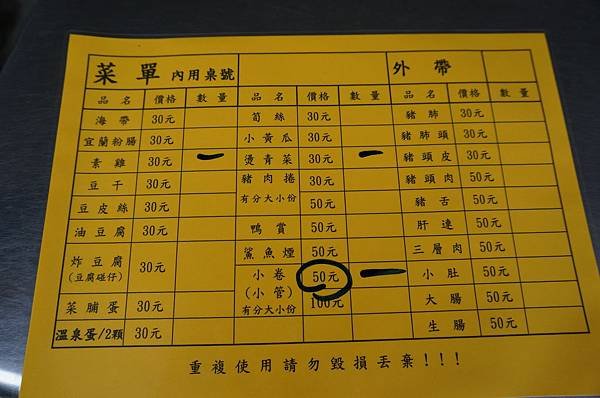 菜單 內用桌號 外帶
品名 價格 數量 品名 價格 數量 品名 價格 數量
海帶 30元 筍絲 30元 豬肺 30元
宜蘭粉腸 30元 小黃瓜 30元 豬肺頭 30元
素雞 30元 一 燙青菜 30元 一 豬頭皮 30元
豆干 30元 豬肉捲 30元 豬頭肉 50元
豆皮絲 30元 有分大小份 50元 豬舌 50元
油豆腐 30元 鴨賞 50元 肝連 50元
炸豆腐 30元 鯊魚煙 50元 三層肉 50元
(豆腐碰仔) 小卷 50元 一 小肚 50元
(小管) 100元
菜脯蛋 30元 有分大小份 大腸 50元
溫泉蛋/2顆 30元 生腸 50元
重複使用請勿毀損丟棄!!!